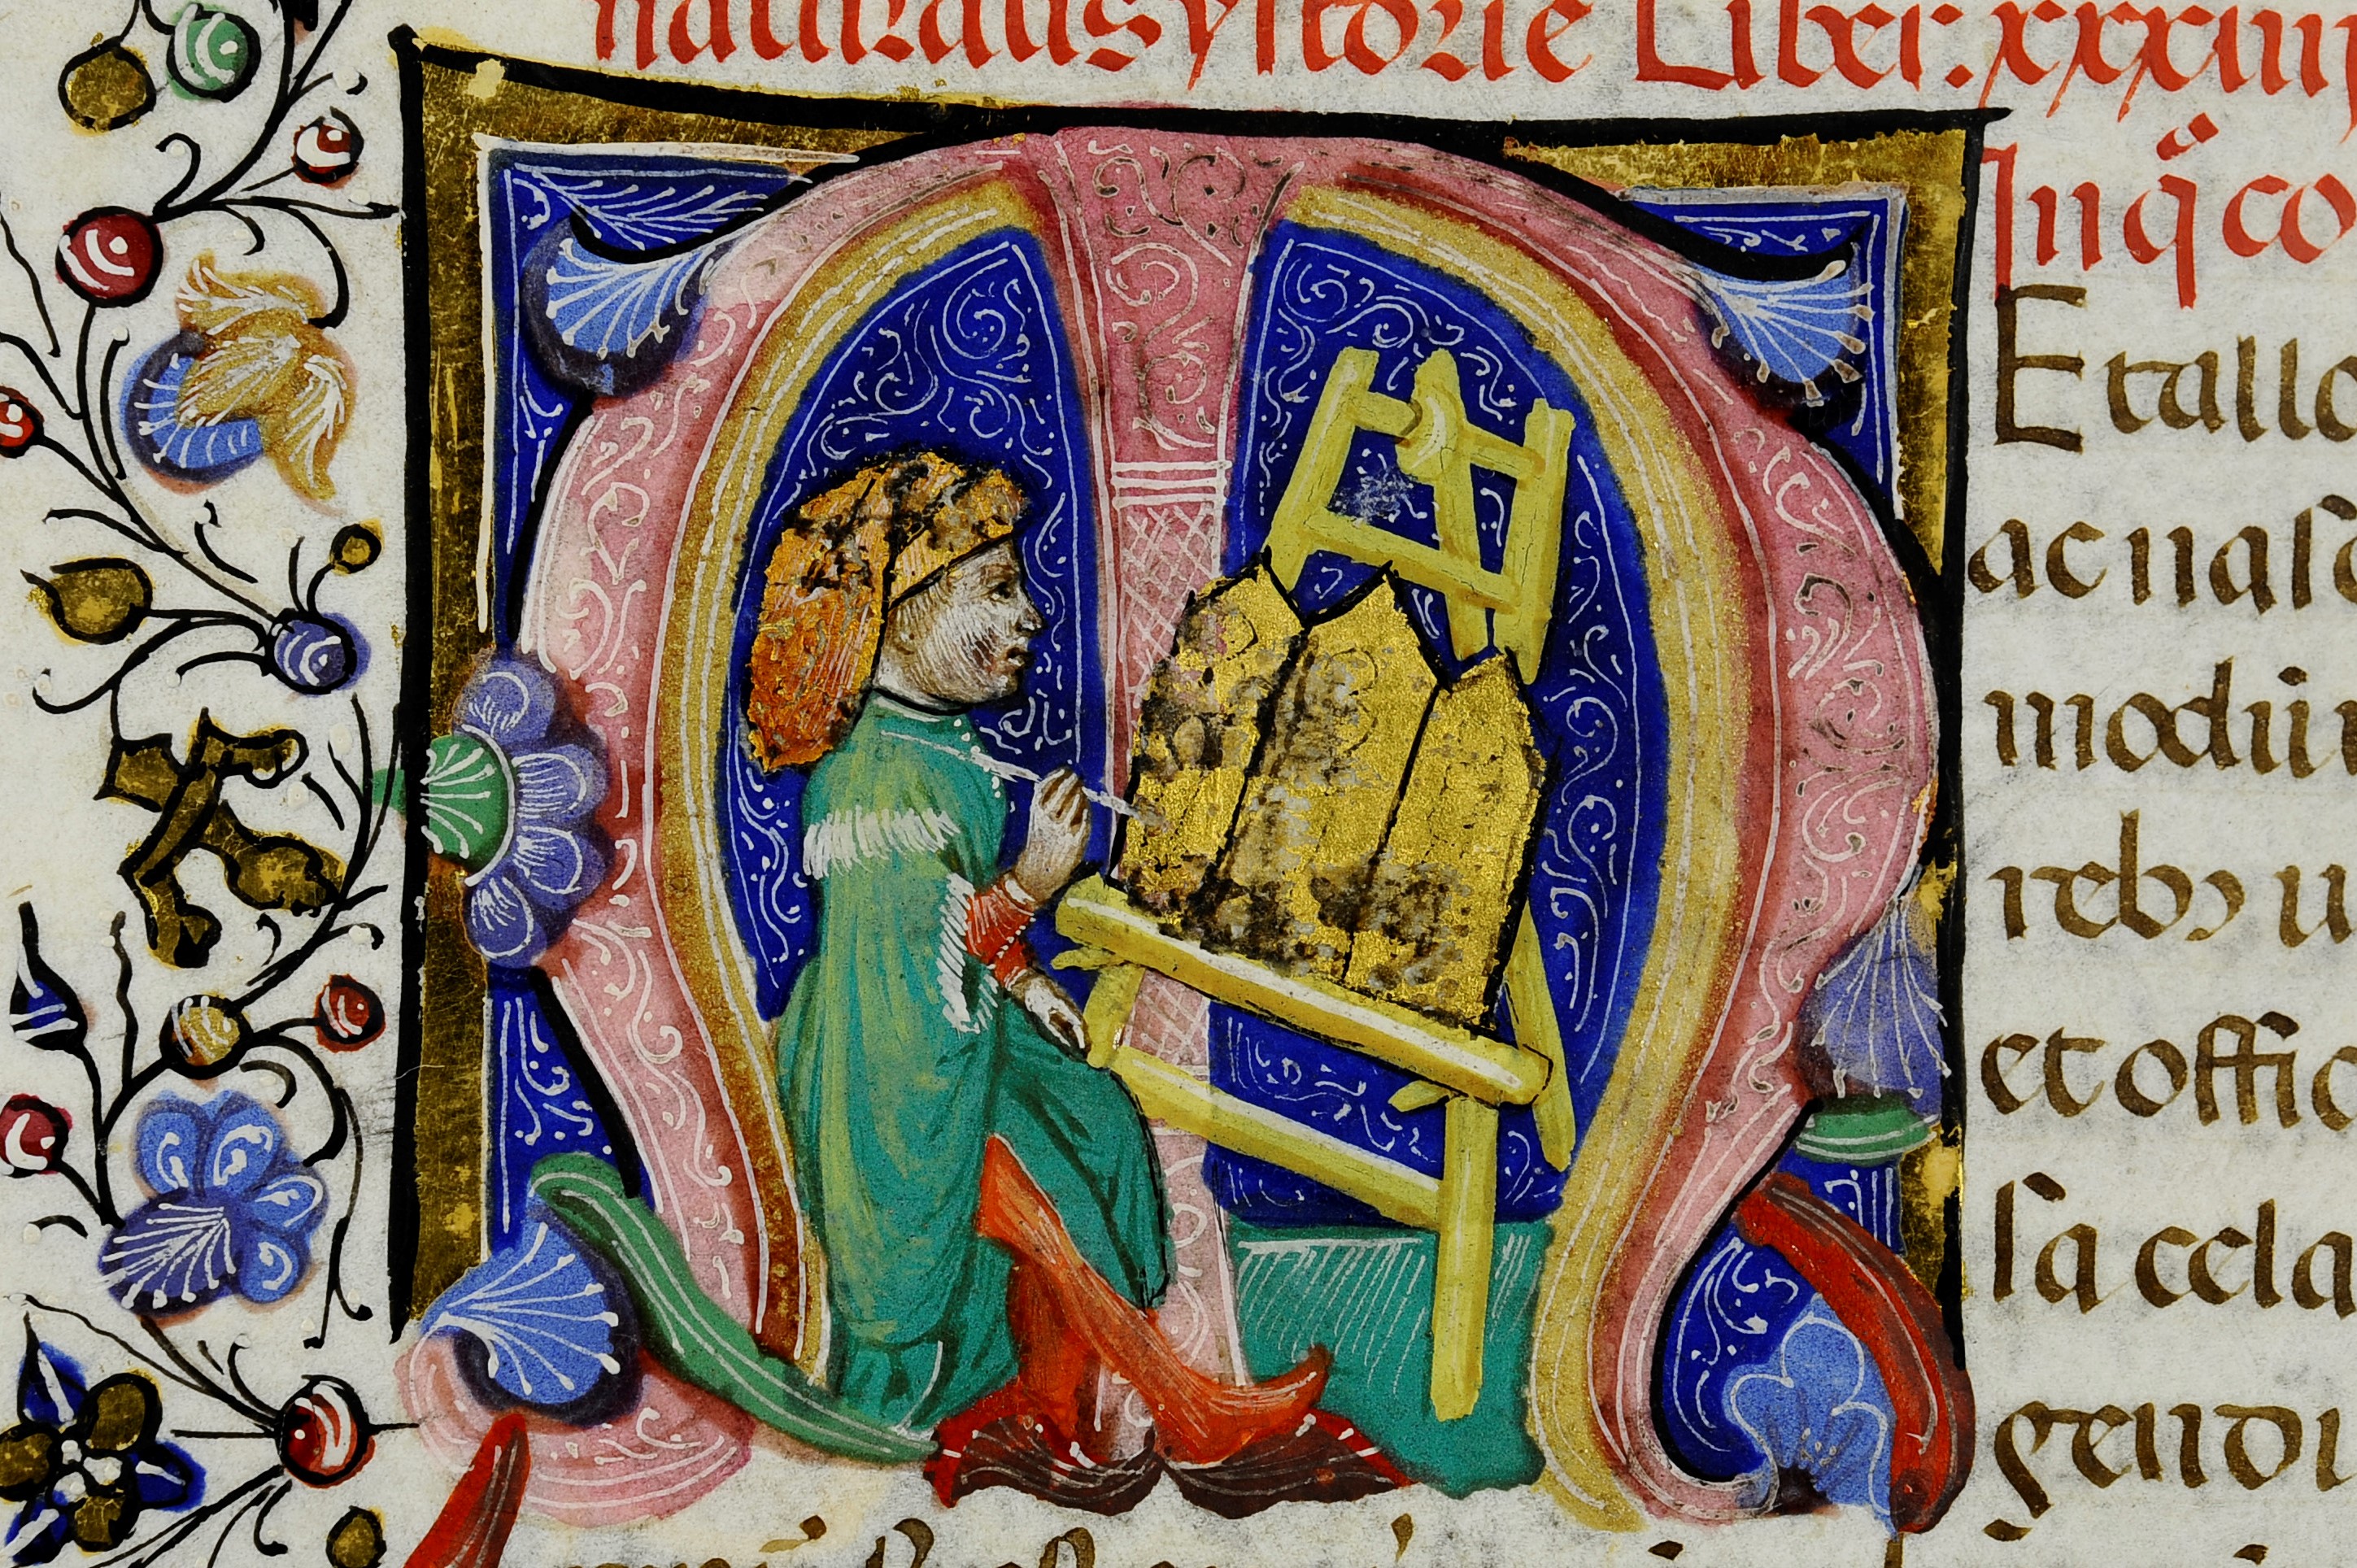 naturalis ystorie Liber: xxxiiij
Inq̃ co
M
Etallo
ac nasc
modũ
rebꝫ u
et offic
sa cela
gendi